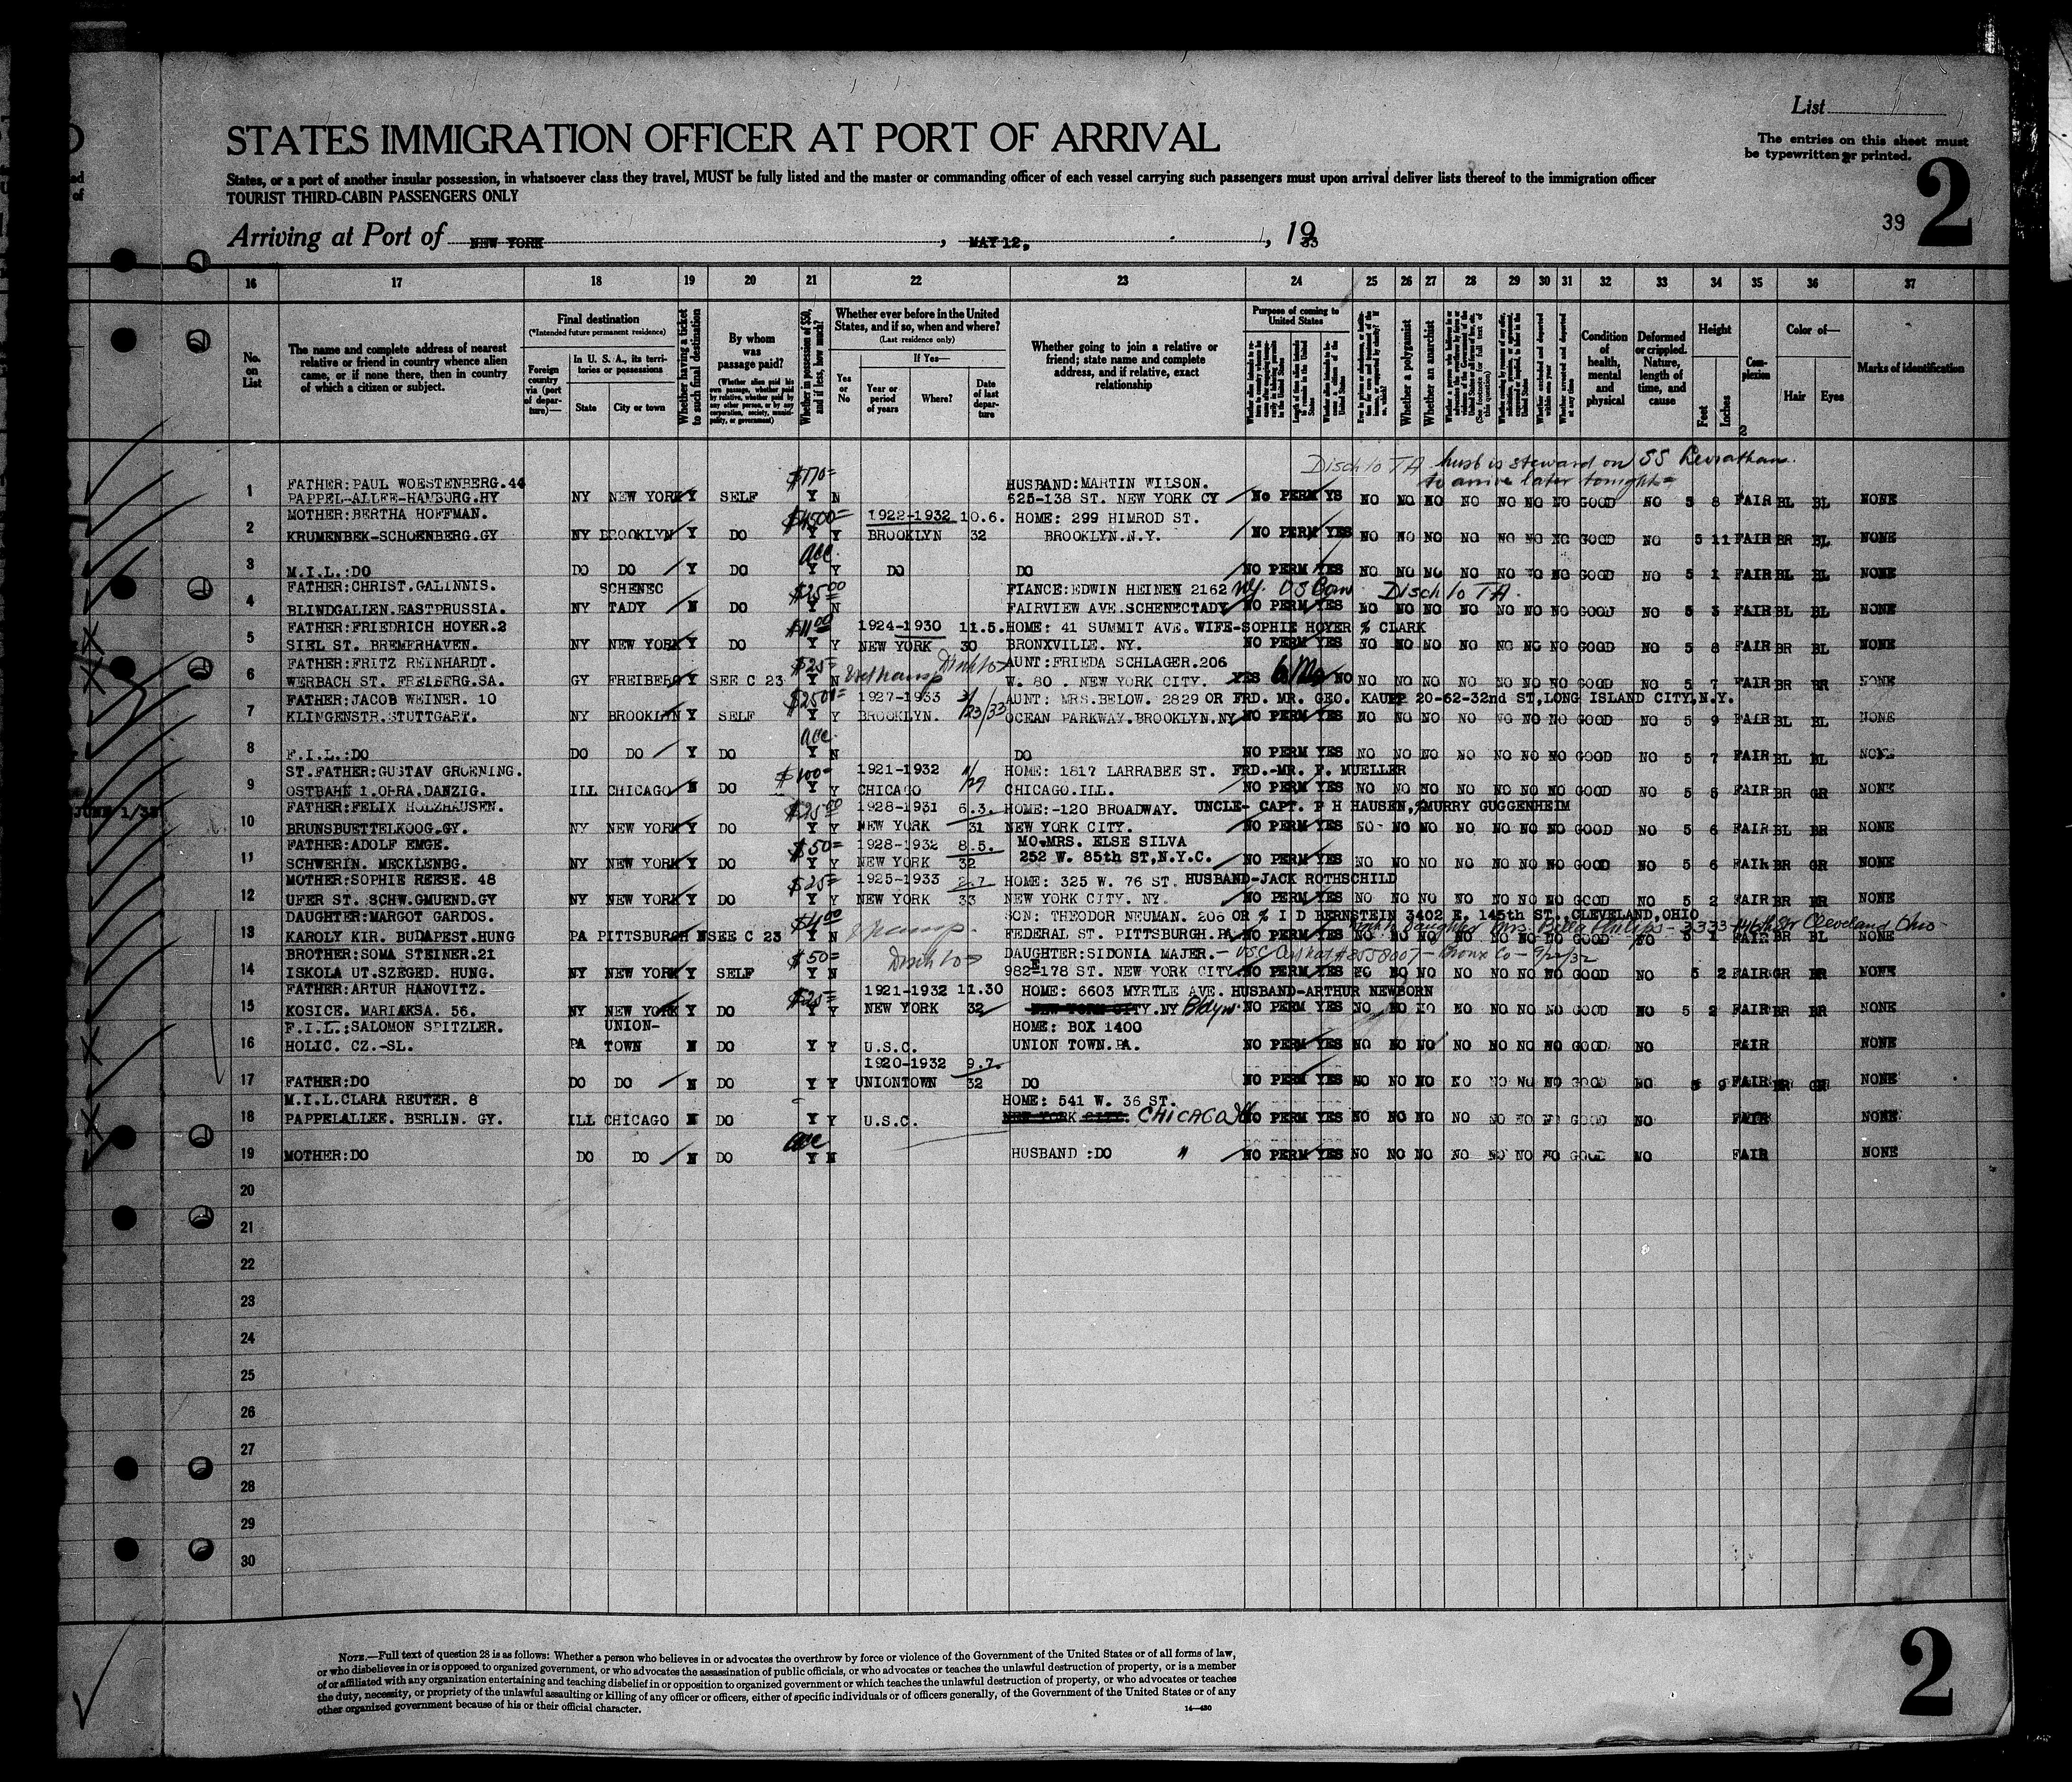 List
STATES IMMIGRATION OFFICER AT PORT OF ARRIVAL
The entries on this sheet must
be typewritten or printed.
States, or a port of another insular possession, in whatsoever class they travel, MUST be fully listed and the master or commanding officer of each vessel carrying such passengers must upon arrival deliver lists thereof to the immigration officer
TOURIST THIRD-CABIN PASSENGERS ONLY
39 2
Arriving at Port of NEW YORK, MAY 12, 1933
16 17 18 19 20 21 22 23 24 25 26 27 28 29 30 31 32 33 34 35 36 37
No. on List
The name and complete address of nearest
relative or friend in country whence alien
came, or if none there, then in country
of which a citizen or subject.
Final destination
(*Intended future permanent residence)
Foreign country via (port of departure)—
In U. S. A., its territories or possessions
State
City or town
Whether having a ticket to such final destination
By whom was passage paid?
(Whether alien paid his own passage, whether paid by relative, whether paid by any other person, or by any corporation, society, municipality, or government)
Whether in possession of $50, and if less, how much?
Whether ever before in the United States, and if so, when and where?
(Last residence only)
Yes or No
If Yes—
Year or period of years
Where?
Date of last departure
Whether going to join a relative or
friend; state name and complete
address, and if relative, exact
relationship
Purpose of coming to United States
Whether a polygamist
Whether an anarchist
Condition of health, mental and physical
Deformed or crippled. Nature, length of time, and cause
Height
Feet
Inches
Complexion
Color of—
Hair
Eyes
Marks of identification
Disch to TA husb is steward on SS Leviathan
to arrive later tonight
$170=
FATHER:PAUL WOESTENBERG.44 HUSBAND:MARTIN WILSON.
1 PAPPEL-ALLEE-HAMBURG.HY NY NEW YORK Y SELF Y N 525-138 ST. NEW YORK CY NO PERM YS NO NO NO NO NO NO NO GOOD NO 5 8 FAIR BL BL NONE
MOTHER:BERTHA HOFFMAN. 1922-1932 10.6. HOME: 299 HIMROD ST.
2 KRUMENBEK-SCHOENBERG.GY NY BROOKLYN Y DO Y Y BROOKLYN 32 BROOKLYN.N.Y. NO PERM YES NO NO NO NO NO NO NO GOOD NO 5 11 FAIR BR BL NONE
acc
3 M.I.L.:DO DO DO Y DO Y Y DO DO NO PERM YES NO NO NO NO NO NO NO GOOD NO 5 1 FAIR BL BL NONE
FATHER:CHRIST.GALINNIS. SCHENEC $25.00 FIANCE:EDWIN HEINEN 2162 Disch to TA.
4 BLINDGALLEN.EASTPRUSSIA. NY TADY N DO Y N FAIRVIEW AVE.SCHENECTADY NO PERM YES NO NO NO NO NO NO NO GOOD NO 5 3 FAIR BL BL NONE
FATHER:FRIEDRICH HOYER.2 $11.00 1924-1930 11.5. HOME: 41 SUMMIT AVE. WIFE-SOPHIE HOYER % CLARK
5 SIEL ST. BREMERHAVEN. NY NEW YORK Y DO Y Y NEW YORK 30 BRONXVILLE. NY. NO PERM YES NO NO NO NO NO NO NO GOOD NO 5 8 FAIR BR BL NONE
FATHER:FRITZ REINHARDT. $25= AUNT:FRIEDA SCHLAGER.206
6 WERBACH ST. FREIBERG.SA. GY FREIBERG Y SEE C 23 Y N W. 80 . NEW YORK CITY. YES 6 Mo NO NO NO NO NO NO NO NO GOOD NO 5 7 FAIR BR BR NONE
FATHER:JACOB WEINER. 10 1927-1933 AUNT: MRS.BELOW. 2829 OR FRD. MR. GEO. KAUPP 20-62-32nd ST,LONG ISLAND CITY,N.Y.
7 KLINGENSTR.STUTTGART. NY BROOKLYN Y SELF Y Y BROOKLYN. 23/33 OCEAN PARKWAY.BROOKLYN.NY NO PERM YES NO NO NO NO NO NO NO GOOD NO 5 9 FAIR BL BL NONE
acc
8 F.I.L.:DO DO DO Y DO Y N DO NO PERM YES NO NO NO NO NO NO NO GOOD NO 5 7 FAIR BL BL NONE
ST.FATHER:GUSTAV GROENING. $100= 1921-1932 HOME: 1817 LARRABEE ST. FRD.-MR. F. MUELLER
9 OSTBAHN 1.OHRA.DANZIG. ILL CHICAGO N DO Y Y CHICAGO CHICAGO.ILL. NO PERM YES NO NO NO NO NO NO NO GOOD NO 5 6 FAIR BR GR NONE
FATHER:FELIX HOLZHAUSEN. $25.00 1928-1931 6.3. HOME:-120 BROADWAY. UNCLE- CAPT. F H HAUSEN,%MURRY GUGGENHEIM
10 BRUNSBUETTELKOOG.GY. NY NEW YORK Y DO Y Y NEW YORK 31 NEW YORK CITY. NO PERM YES NO NO NO NO NO NO NO GOOD NO 5 6 FAIR BL BR NONE
FATHER:ADOLF EMGE. $50= 1928-1932 8.5. MO.MRS. ELSE SILVA
11 SCHWERIN. MECKLENBG. NY NEW YORK Y DO Y Y NEW YORK 32 252 W. 85th ST,N.Y.C. NO PERM YES NO NO NO NO NO NO NO GOOD NO 5 6 FAIR BR GR NONE
MOTHER:SOPHIE REESE. 48 $25= 1925-1933 2.7 HOME: 325 W. 76 ST. HUSBAND-JACK ROTHSCHILD
12 UFER ST. SCHW.GMUEND.GY NY NEW YORK Y DO Y Y NEW YORK 33 NEW YORK CITY. NY. NO PERM YES NO NO NO NO NO NO NO GOOD NO 5 2 FAIR BR BR NONE
DAUGHTER:MARGOT GARDOS. SON: THEODOR NEUMAN. 206 OR % I D BERNSTEIN 3402 E. 145th ST.,CLEVELAND,OHIO
Daughter Mrs Bella Philips - 3333 146th St Cleveland Ohio
13 KAROLY KIR. BUDAPEST.HUNG PA PITTSBURGH N SEE C 23 Y N FEDERAL ST. PITTSBURGH.PA NO PERM YES NO NO NO NO NO NO NO GOOD NO 5 1 FAIR BR BL NONE
BROTHER:SOMA STEINER.21 $50= DAUGHTER:SIDONIA MAJER.
14 ISKOLA UT.SZEGED. HUNG. NY NEW YORK Y SELF Y N 982E-178 ST. NEW YORK CITY NO PERM YES NO NO NO NO NO NO NO GOOD NO 5 2 FAIR GR BR NONE
FATHER:ARTUR HANOVITZ. $25= 1921-1932 11.30 HOME: 6603 MYRTLE AVE. HUSBAND-ARTHUR NEWBORN
15 KOSICE. MARIAKSA. 56. NY NEW YORK Y DO Y Y NEW YORK 32 NEW YORK CITY.NY Bklyn NO PERM YES NO NO NO NO NO NO NO GOOD NO 5 2 FAIR BR BR NONE
F.I.L.:SALOMON SPITZLER. UNION- HOME: BOX 1400
16 HOLIC. CZ.-SL. PA TOWN N DO Y Y U.S.C. UNION TOWN.PA. NO PERM YES NO NO NO NO NO NO NO GOOD NO FAIR NONE
1920-1932 9.7.
17 FATHER:DO DO DO N DO Y Y UNIONTOWN 32 DO NO PERM YES NO NO NO NO NO NO NO GOOD NO 5 9 FAIR BR GR NONE
M.I.L.CLARA REUTER. 8 HOME: 541 W. 36 ST.
18 PAPPELALLEE. BERLIN. GY. ILL CHICAGO N DO Y Y U.S.C. NEW YORK CITY. CHICAGO NO PERM YES NO NO NO NO NO NO NO GOOD NO FAIR NONE
acc
19 MOTHER:DO DO DO N DO Y N HUSBAND :DO " NO PERM YES NO NO NO NO NO NO NO GOOD NO FAIR NONE
20
21
22
23
24
25
26
27
28
29
30
NOTE.—Full text of question 28 is as follows: Whether a person who believes in or advocates the overthrow by force or violence of the Government of the United States or of all forms of law,
or who disbelieves in or is opposed to organized government, or who advocates the assassination of public officials, or who advocates or teaches the unlawful destruction of property, or is a member
of or affiliated with any organization entertaining and teaching disbelief in or opposition to organized government or which teaches the unlawful destruction of property, or who advocates or teaches
the duty, necessity, or propriety of the unlawful assaulting or killing of any officer or officers, either of specific individuals or of officers generally, of the Government of the United States or of any
other organized government because of his or their official character.
14—430
2